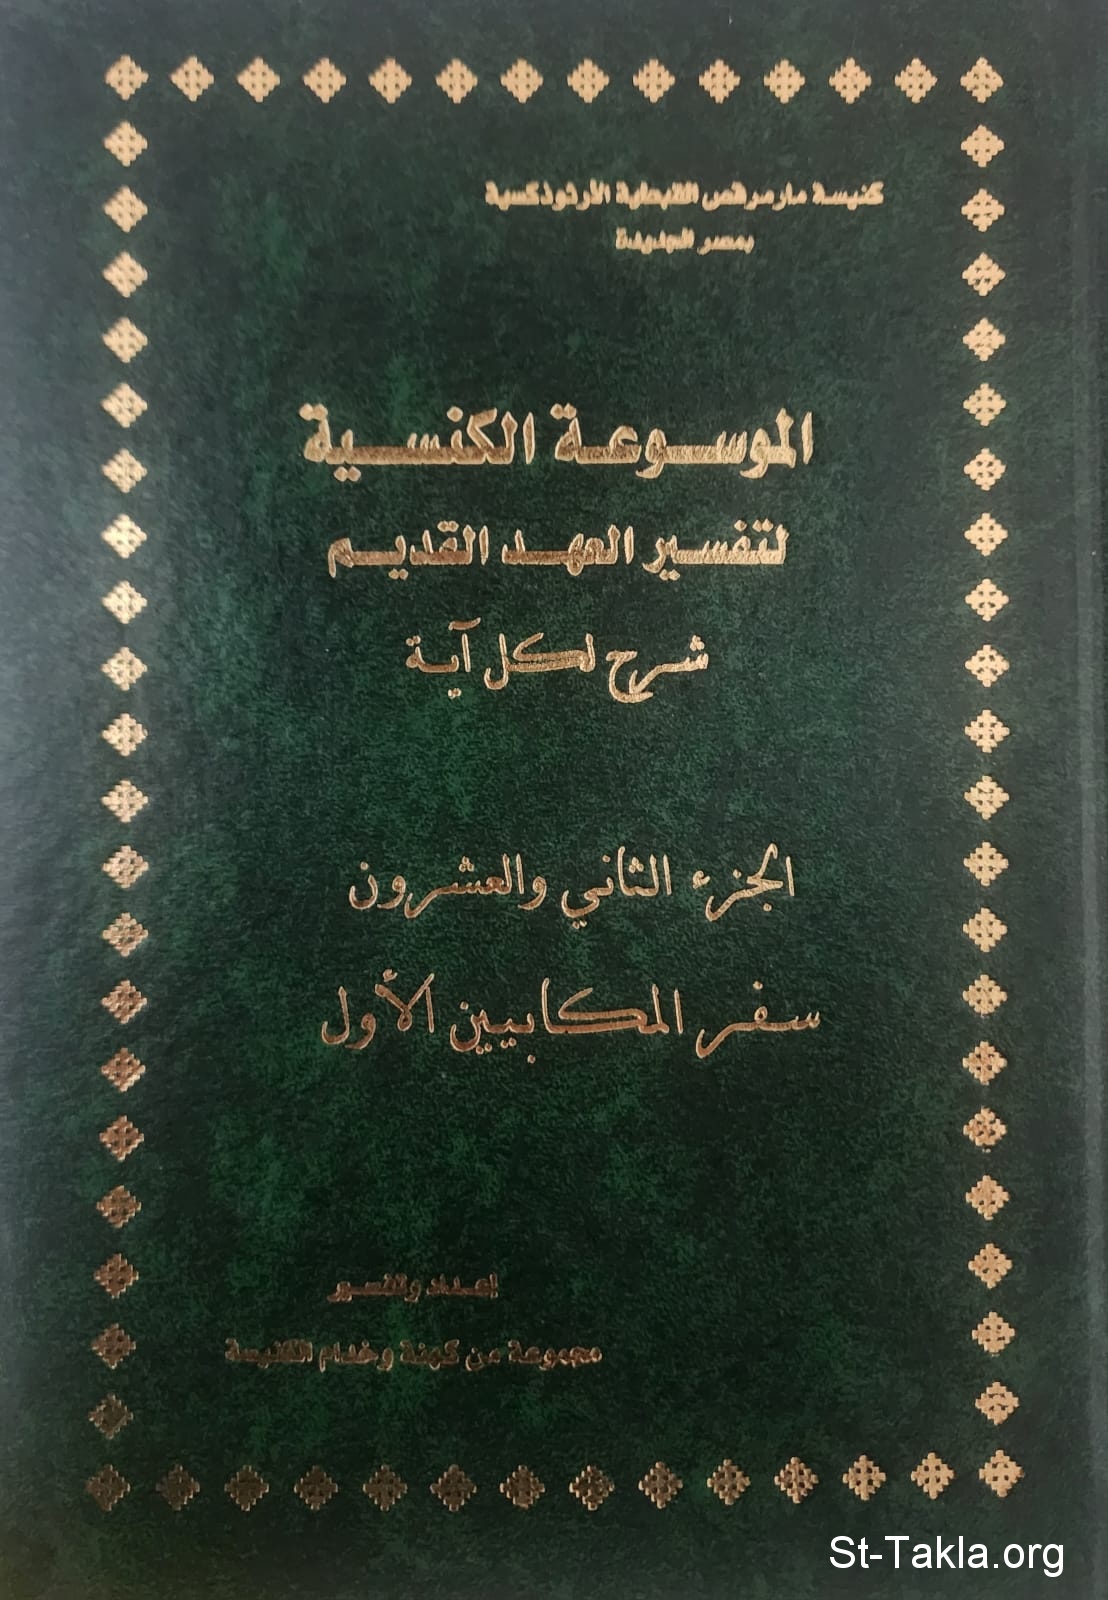 كنيسة مارمرقس القبطية الأرثوذكسية
بمصر الجديدة
الموسوعة الكنسية
لتفسير العهد القديم
شرح لكل آية
الجزء الثاني والعشرون
سفر المكابيين الأول
إعداد وتفسير
مجموعة من كهنة وخدام الكنيسة
St-Takla.org